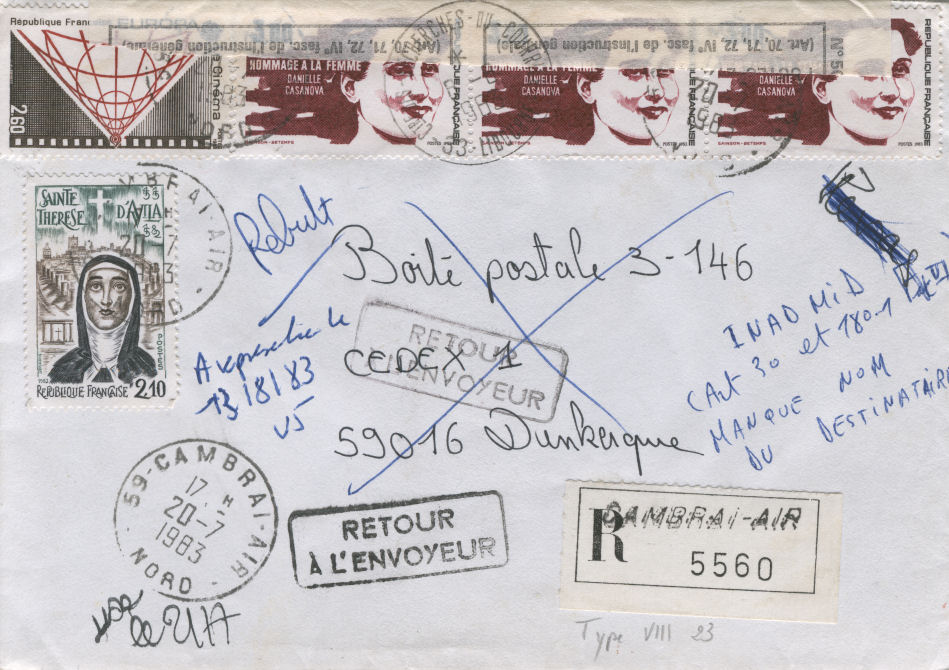 République
EUROPA
RECHERCHES - DU - COURRIER
(Art. 70, 71, 72, IVe fasc. de l'Instruction générale,
(Art. 70, 71, 72, IVe fasc. de l'Instruction générale,
N°
2,60
Cinéma
HOMMAGE A LA FEMME
DANIELLE
CASANOVA
RÉPUBLIQUE FRANÇAISE
3,00
GAINSON-BETEMPS
POSTES 1983
HOMMAGE A LA FEMME
DANIELLE
CASANOVA
RÉPUBLIQUE FRANÇAISE
GAINSON-BETEMPS
POSTES 1983
DANIELLE
CASANOVA
RÉPUBLIQUE FRANÇAISE
GAINSON-BETEMPS
POSTES 1983
33 - LIBOURNE
SAINTE
THERESE
D'AVILA
POSTES
1982
REPUBLIQUE FRANÇAISE
2,10
CAMBRAI-AIR
20-7
Rebut
Boîte postale 3-146
CEDEX 1
59016 Dunkerque
RETOUR
À L'ENVOYEUR
13/8/83
INADMIS
(Art 30 et 180-1
MANQUE NOM
DU DESTINATAIRE
59-CAMBRAI-AIR
17 H
20-7
1983
NORD
RETOUR
À L'ENVOYEUR
R
CAMBRAI-AIR
5560
Type VIII 23